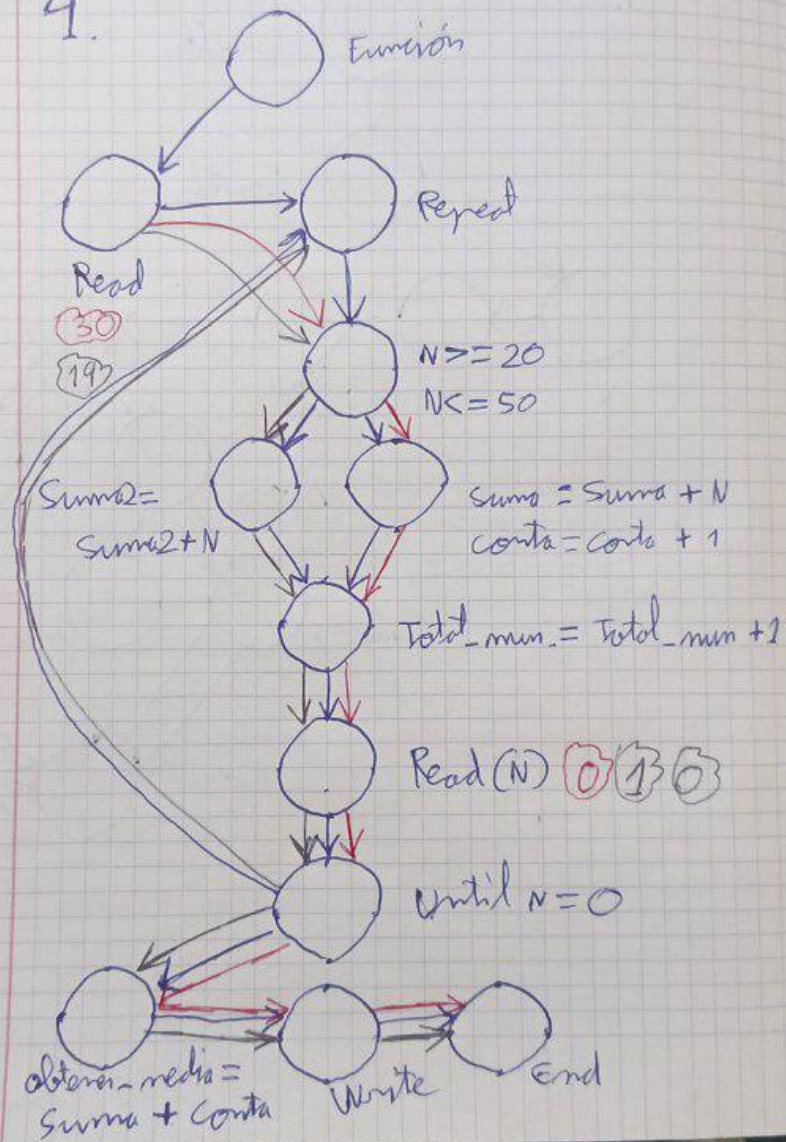 4.
Función
Repeat
Read
30
19
N>=20
N<=50
Suma2=
Suma2+N
suma = Suma + N
conta = conta + 1
Total_num = Total_num +1
Read (N) 0 1 0
Until N=0
obtener_media=
Suma + Conta
Write
End